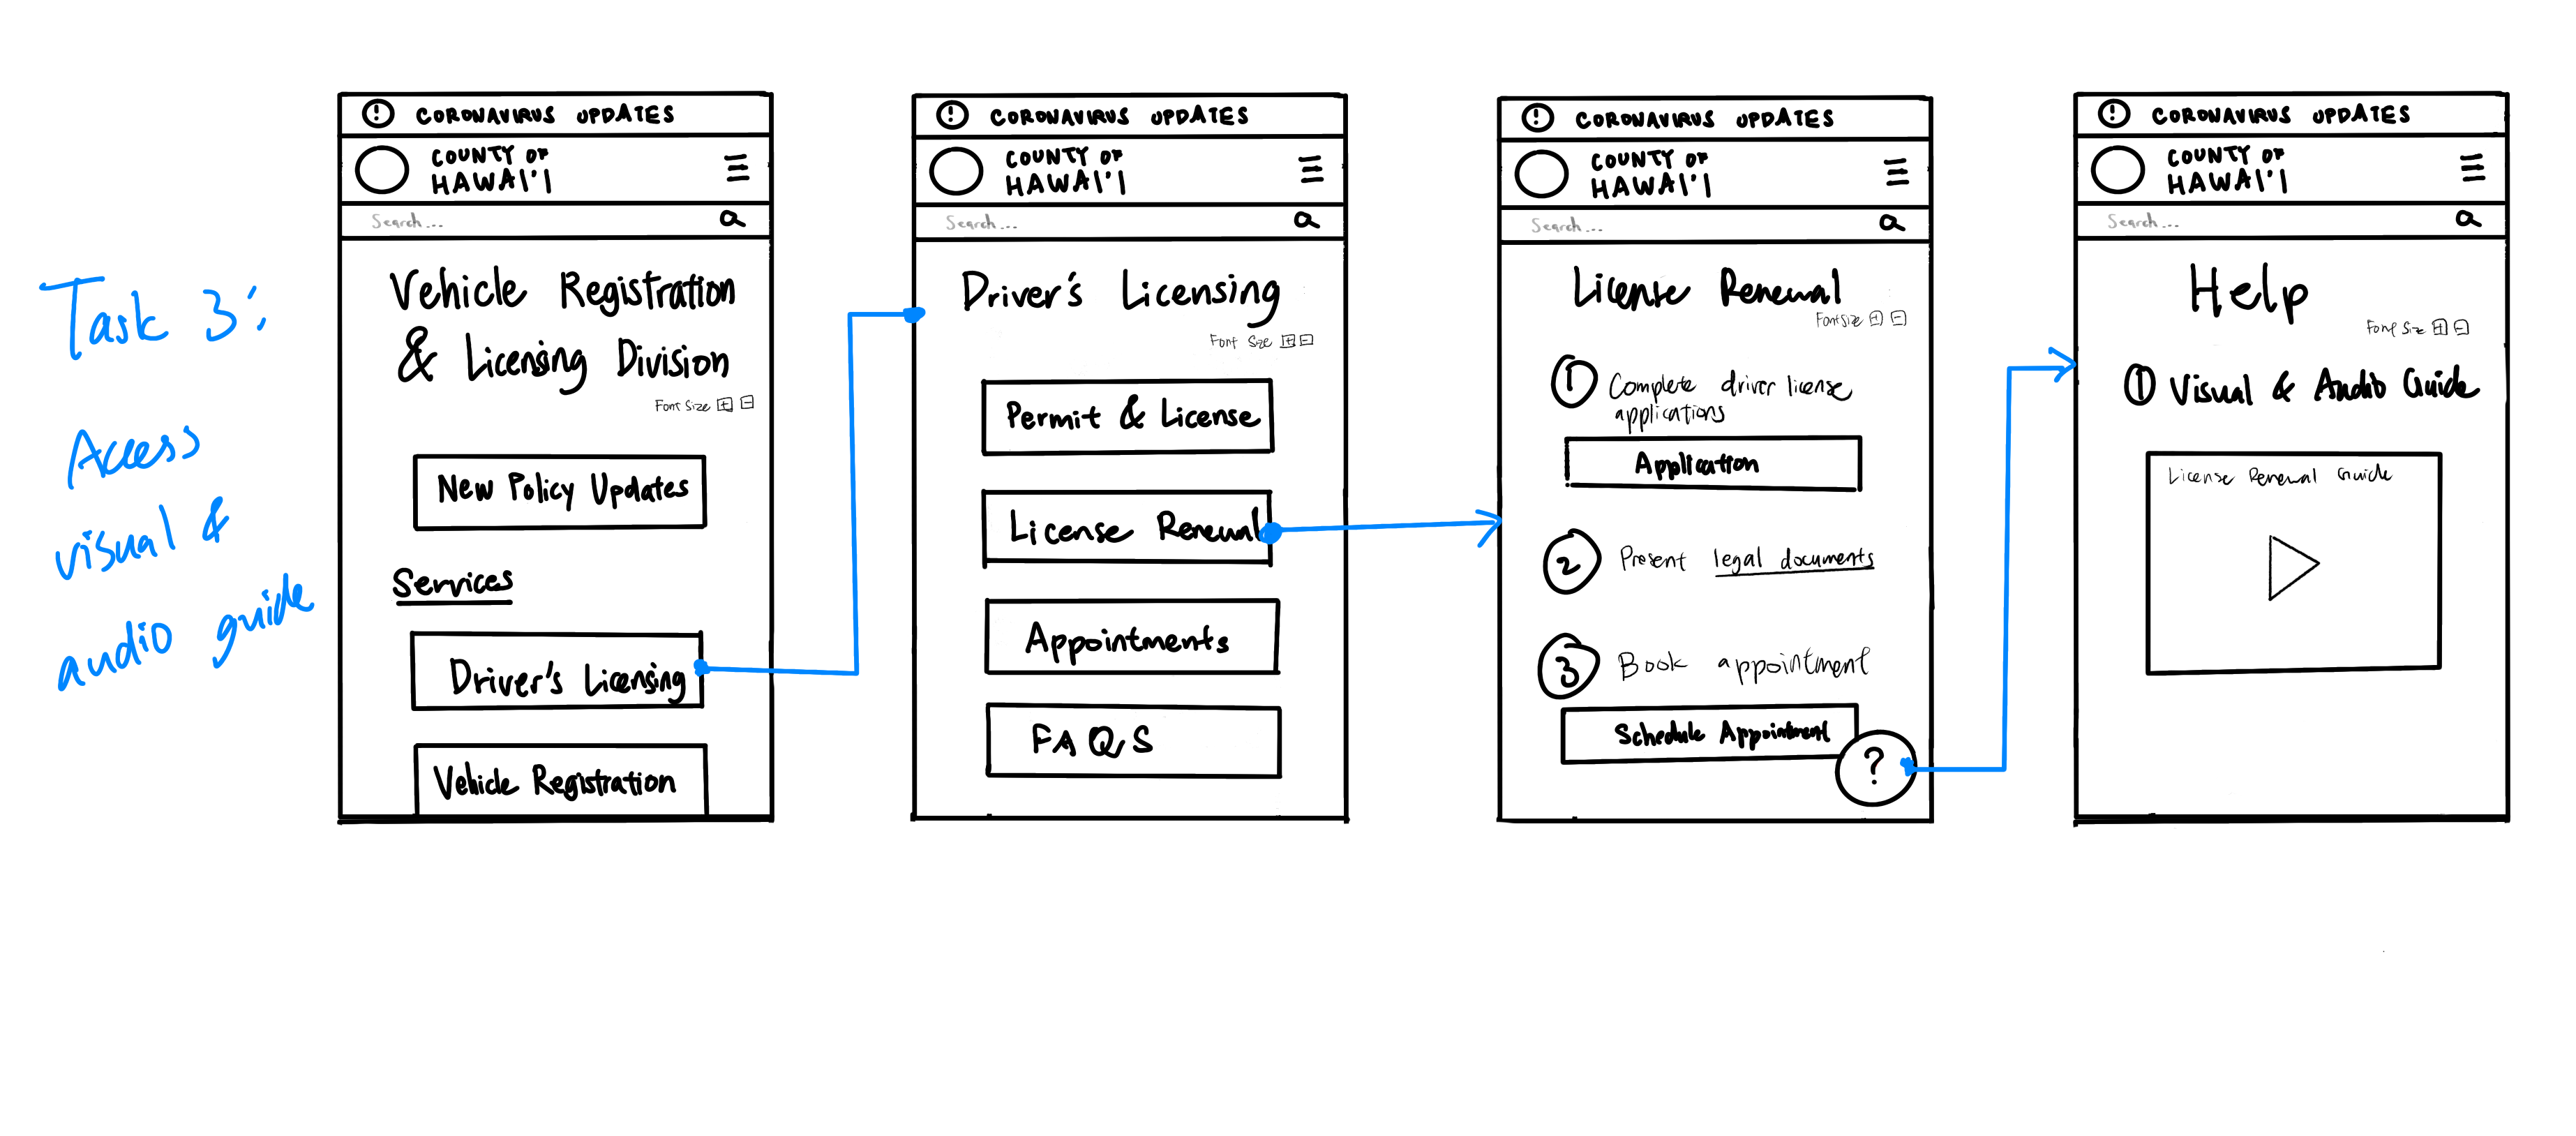 Task 3:
Access
visual &
audio guide
! CORONAVIRUS UPDATES
COUNTY OF
HAWAI'I
Search...
Vehicle Registration
& Licensing Division
Font Size + -
New Policy Updates
Services
Driver's Licensing
Vehicle Registration
! CORONAVIRUS UPDATES
COUNTY OF
HAWAI'I
Search...
Driver's Licensing
Font Size + -
Permit & License
License Renewal
Appointments
FAQS
! CORONAVIRUS UPDATES
COUNTY OF
HAWAI'I
Search...
License Renewal
Font Size + -
1 Complete driver license
applications
Application
2 Present legal documents
3 Book appointment
Schedule Appointment
?
! CORONAVIRUS UPDATES
COUNTY OF
HAWAI'I
Search...
Help
Font Size + -
1 Visual & Audio Guide
License Renewal Guide